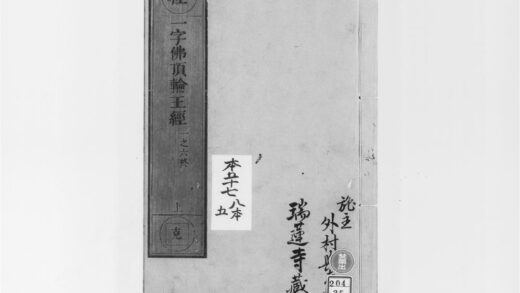 一字佛頂輪王經 一之六終
上
克
本五十七 八本
五
施主
外村
瑞蓮寺藏
204